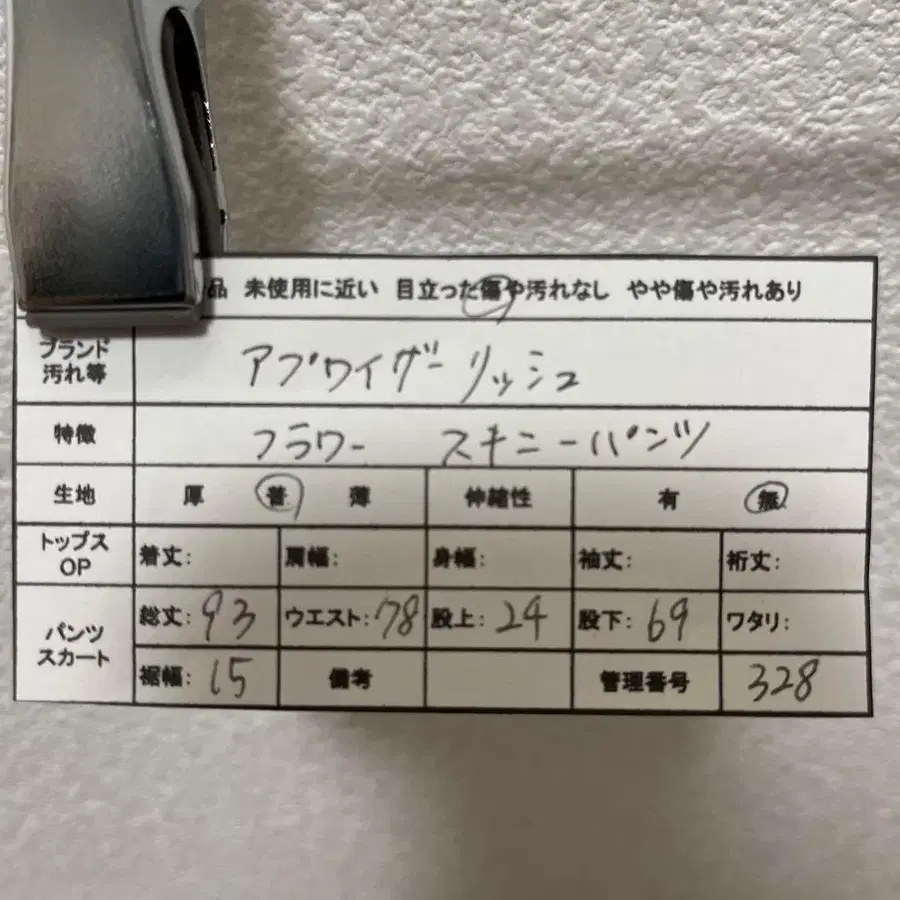 品 未使用に近い 目立った傷や汚れなし やや傷や汚れあり
ブランド
汚れ等
アプワイザーリッシュ
特徴 フラワー スキニーパンツ
生地 厚 普 薄 伸縮性 有 無
トップス
OP
着丈: 肩幅: 身幅: 袖丈: 裄丈:
パンツ
スカート
総丈: 93 ウエスト: 78 股上: 24 股下: 69 ワタリ:
裾幅: 15 備考 管理番号 328